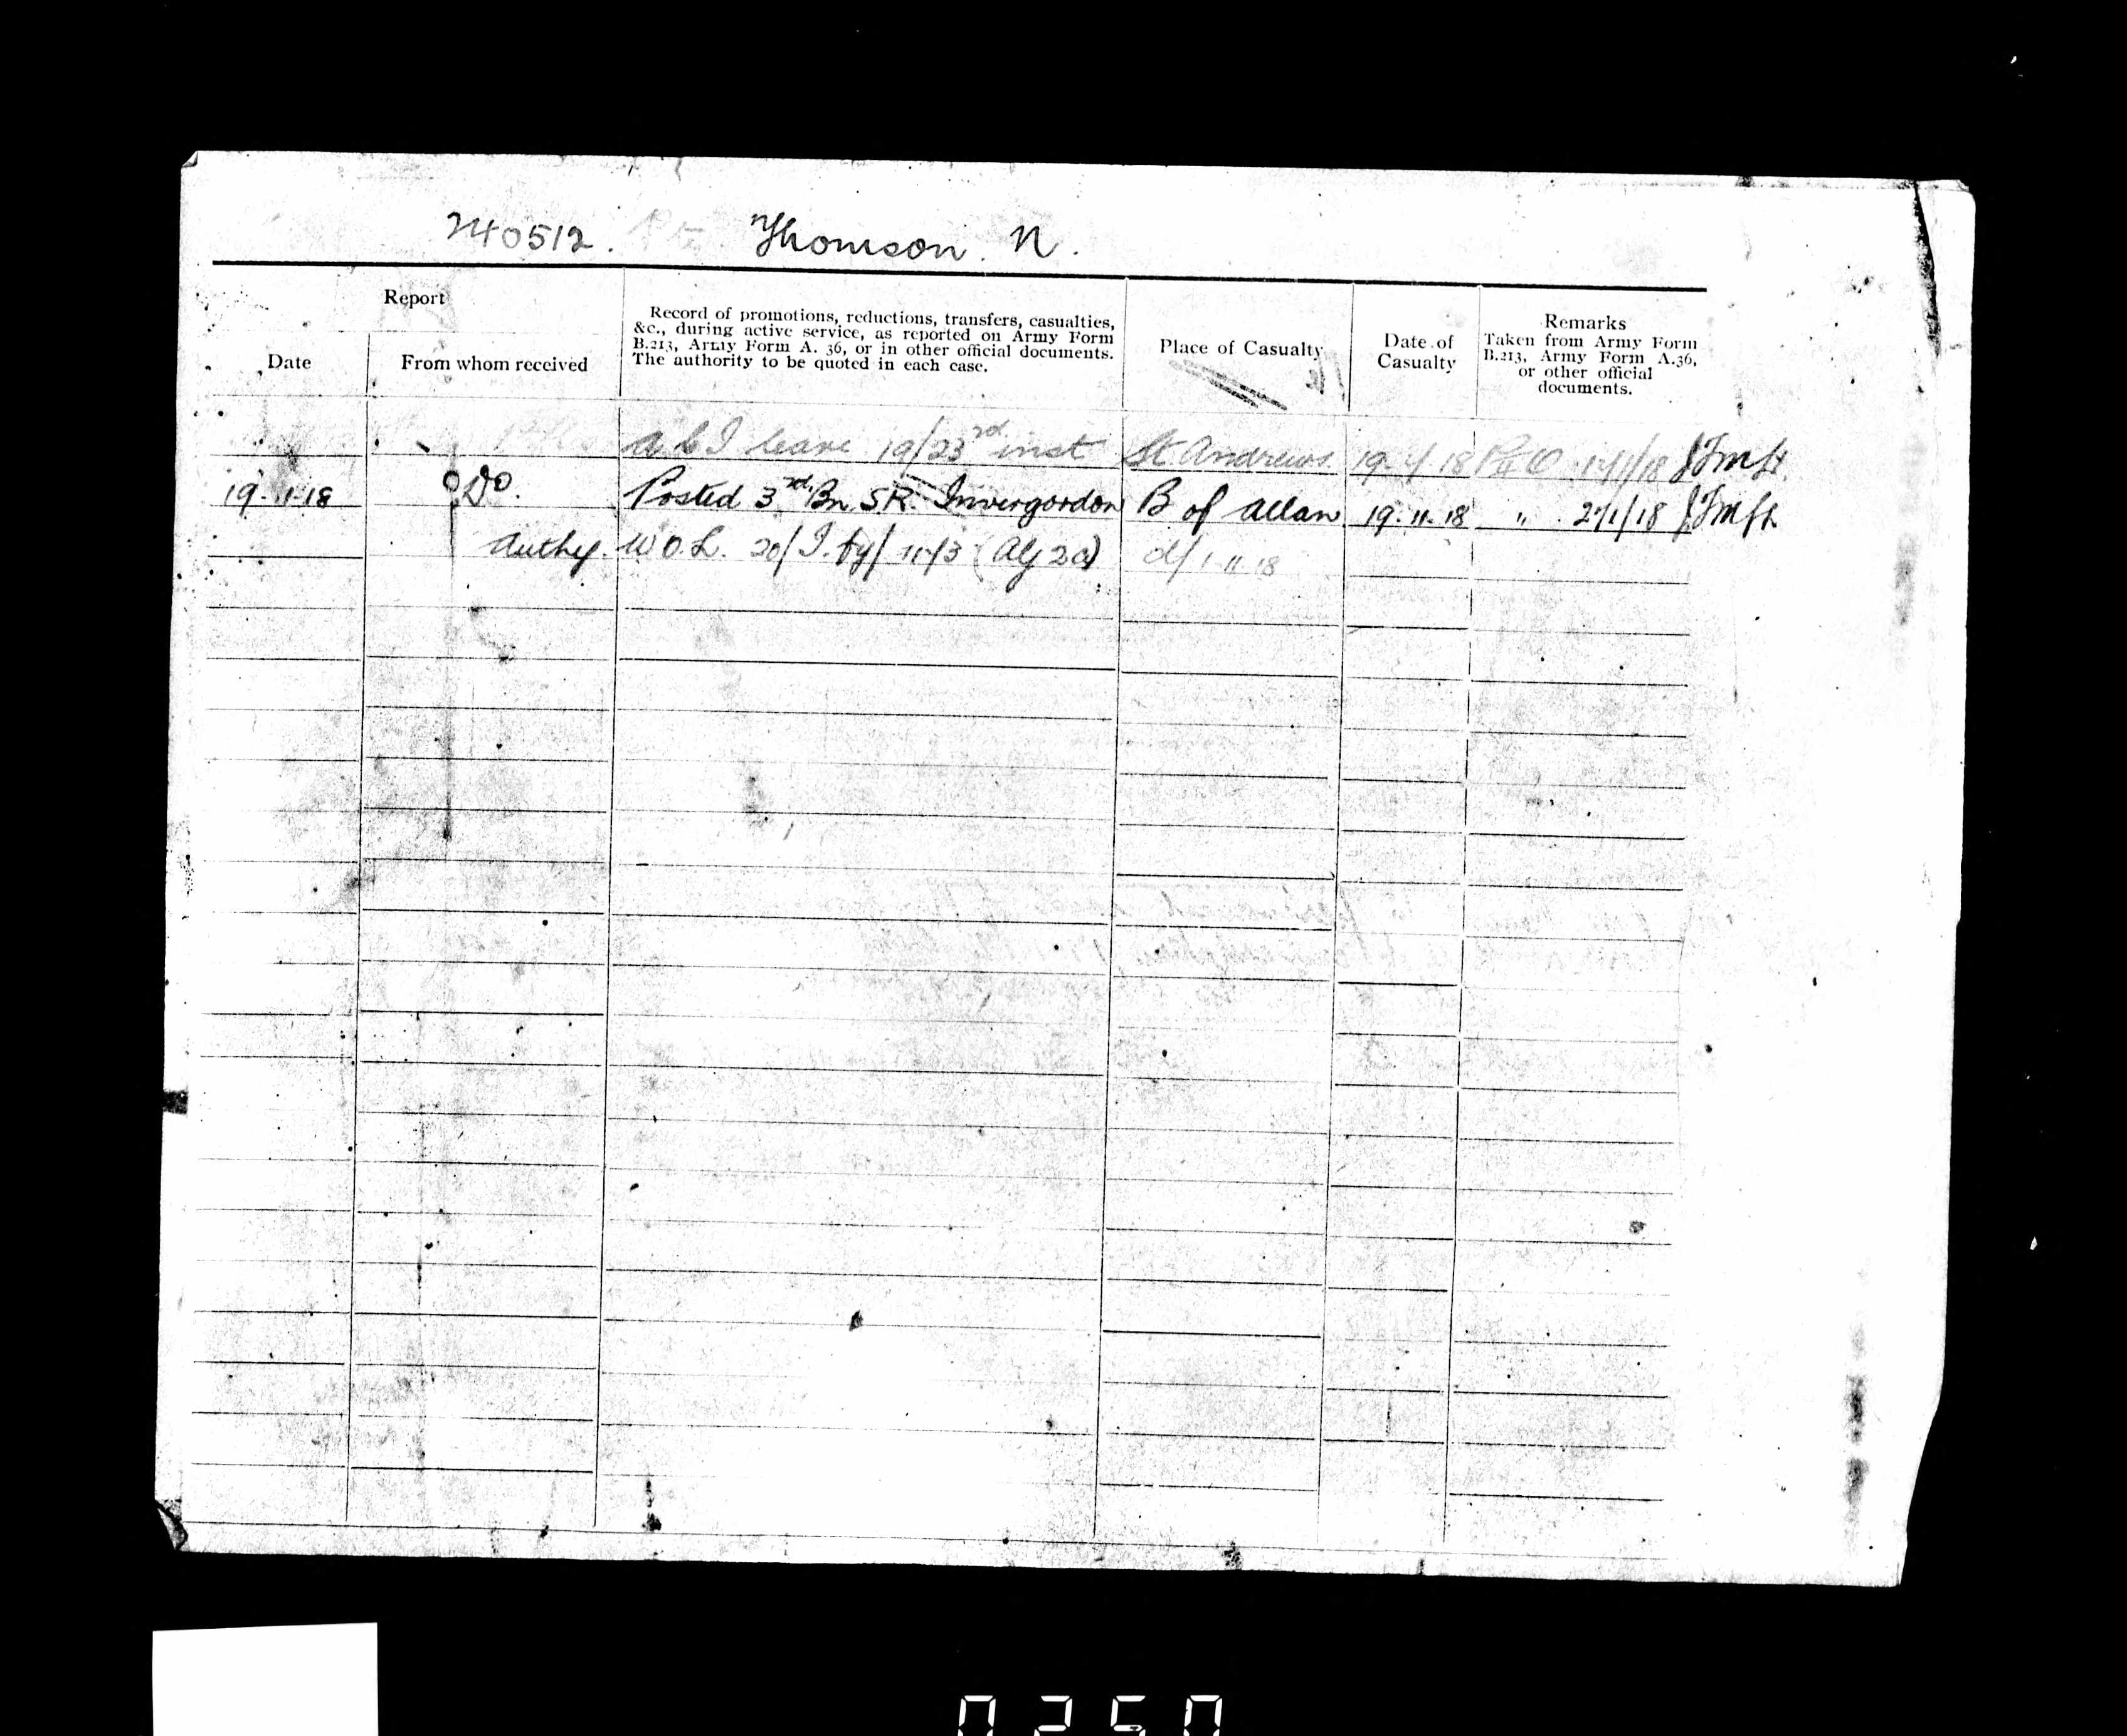 240512. Pte Thomson. N.
Report
Date
From whom received
Record of promotions, reductions, transfers, casualties,
&c., during active service, as reported on Army Form
B.213, Army Form A. 36, or in other official documents.
The authority to be quoted in each case.
Place of Casualty
Date of
Casualty
Remarks
Taken from Army Form
B.213, Army Form A.36,
or other official
documents.
leave 19/23rd inst St. Andrews 18
19-11-18 Do. Posted 3rd Bn. S.R. Invergordon B of Allan 19.11.18 "
Authy. W.O.L. 20/ (AG2a) d/ 1.11.18
0250